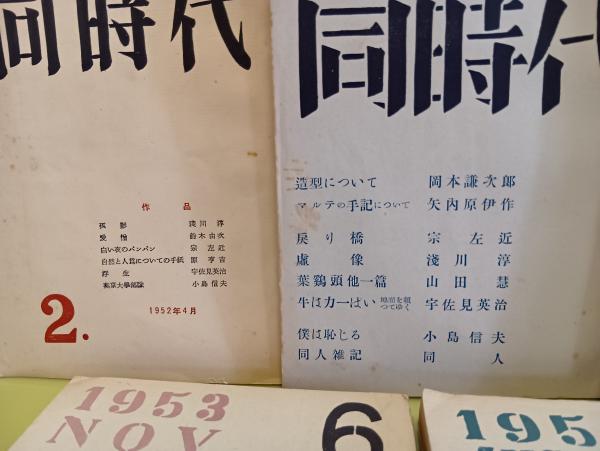 同時代
作品
孤影 淺川淳
愛憎 鈴木由次
白い夜のバンバン 宗左近
自然と人爲についての手紙 原亨吉
浮生 宇佐見英治
東京大學部論 小島信夫
2.
1952年4月
同時代
造型について 岡本謙次郎
マルテの手記について 矢內原伊作
戻り橋 宗左近
虛像 淺川淳
葉鷄頭他一篇 山田慧
牛は力一ぱい 地面を蹴つてゆく 宇佐見英治
僕は恥じる 小島信夫
同人雑記 同人
1953
NOV
6
195